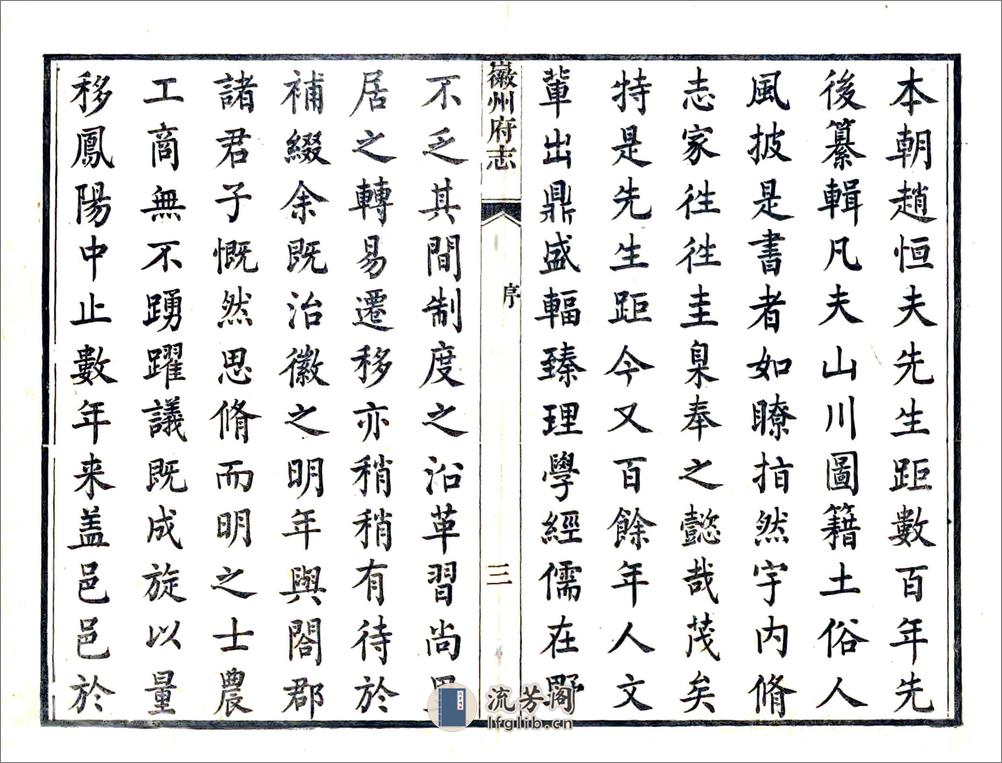 本朝趙恒夫先生距數百年先
後纂輯凡夫山川圖籍土俗人
風披是書者如瞭指然宇内脩
志家往往圭臬奉之懿哉茂矣
特是先生距今又百餘年人文
輩出鼎盛輻臻理學經儒在野
徽州府志
序
三
不乏其間制度之沿革習尚
居之轉易遷移亦稍稍有待於
補綴余既治徽之明年與閤郡
諸君子慨然思脩而明之士農
工商無不踴躍議既成旋以量
移鳳陽中止數年来盖邑邑於
流芳阁
lfglib.cn